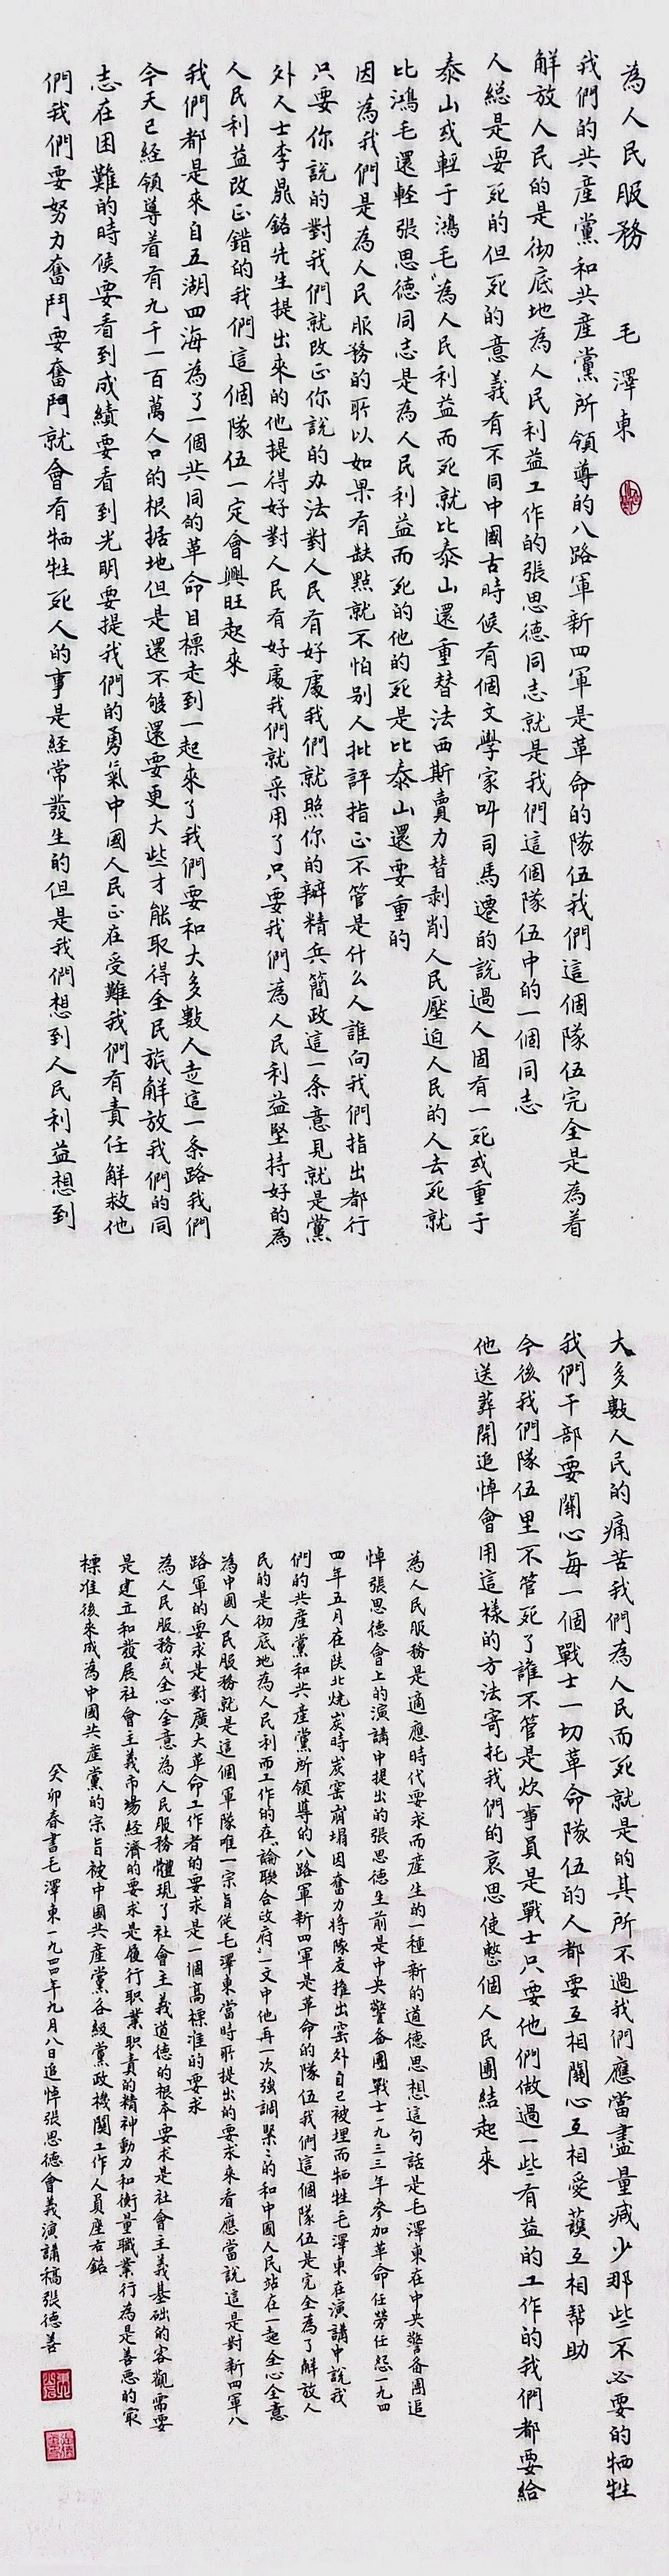 為人民服務 毛澤東
我們的共產黨和共產黨所領導的八路軍新四軍是革命的隊伍我們這個隊伍完全是為着
解放人民的是彻底地為人民利益工作的張思德同志就是我們這個隊伍中的一個同志
人總是要死的但死的意義有不同中國古時候有個文學家叫司馬遷的說過人固有一死或重于
泰山或輕于鴻毛為人民利益而死就比泰山還重替法西斯賣力替剥削人民壓迫人民的人去死就
比鴻毛還輕張思德同志是為人民利益而死的他的死是比泰山還要重的
因為我們是為人民服務的所以如果有缺點就不怕别人批評指正不管是什么人誰向我們指出都行
只要你說的對我們就改正你說的办法對人民有好處我們就照你的辦精兵簡政這一条意見就是黨
外人士李鼎銘先生提出來的他提得好對人民有好處我們就采用了只要我們為人民利益堅持好的為
人民利益改正錯的我們這個隊伍一定會興旺起來
我們都是來自五湖四海為了一個共同的革命目標走到一起來了我們要和大多數人走這一条路我們
今天已經領導着有九千一百萬人口的根据地但是還不够還要更大些才能取得全民族解放我們的同
志在困難的時候要看到成績要看到光明要提我們的勇氣中國人民正在受難我們有責任解救他
們我們要努力奮鬥要奮鬥就會有牺牲死人的事是経常發生的但是我們想到人民利益想到
大多數人民的痛苦我們為人民而死就是的其所不過我們應當盡量减少那些不必要的牺牲
我們干部要關心每一個戰士一切革命隊伍的人都要互相關心互相愛護互相帮助
今後我們隊伍里不管死了誰不管是炊事員是戰士只要他們做過一些有益的工作的我們都要給
他送葬開追悼會用這樣的方法寄托我們的哀思使整個人民團結起來
為人民服務是適應時代要求而產生的一種新的道德思想這句話是毛澤東在中央警备團追
悼張思德會上的演講中提出的張思德生前是中央警备團戰士一九三三年參加革命任勞任怨一九四
四年五月在陕北烧炭時炭窑崩塌因奮力将隊友推出窑外自己被埋而牺牲毛澤東在演講中說我
們的共產黨和共產黨所領導的八路軍新四軍是革命的隊伍我們這個隊伍是完全為了解放人
民的是彻底地為人民利而工作的在論聯合政府一文中他再一次強調緊緊的和中國人民站在一起全心全意
為中國人民服務就是這個軍隊唯一宗旨從毛澤東當時所提出的要求來看應當說這是對新四軍八
路軍的要求是對廣大革命工作者的要求是一個高標准的要求
為人民服務或全心全意為人民服務體現了社會主義道德的根本要求是社會主義基础的客觀需要
是建立和發展社會主義市場経濟的要求是履行职業职責的精神動力和衡量職業行為是善恶的最
標准後來成為中國共產黨的宗旨被中國共產黨各級黨政機關工作人員座右銘
癸卯春書毛澤東一九四四年九月八日追悼張思德會義演講稿張德善